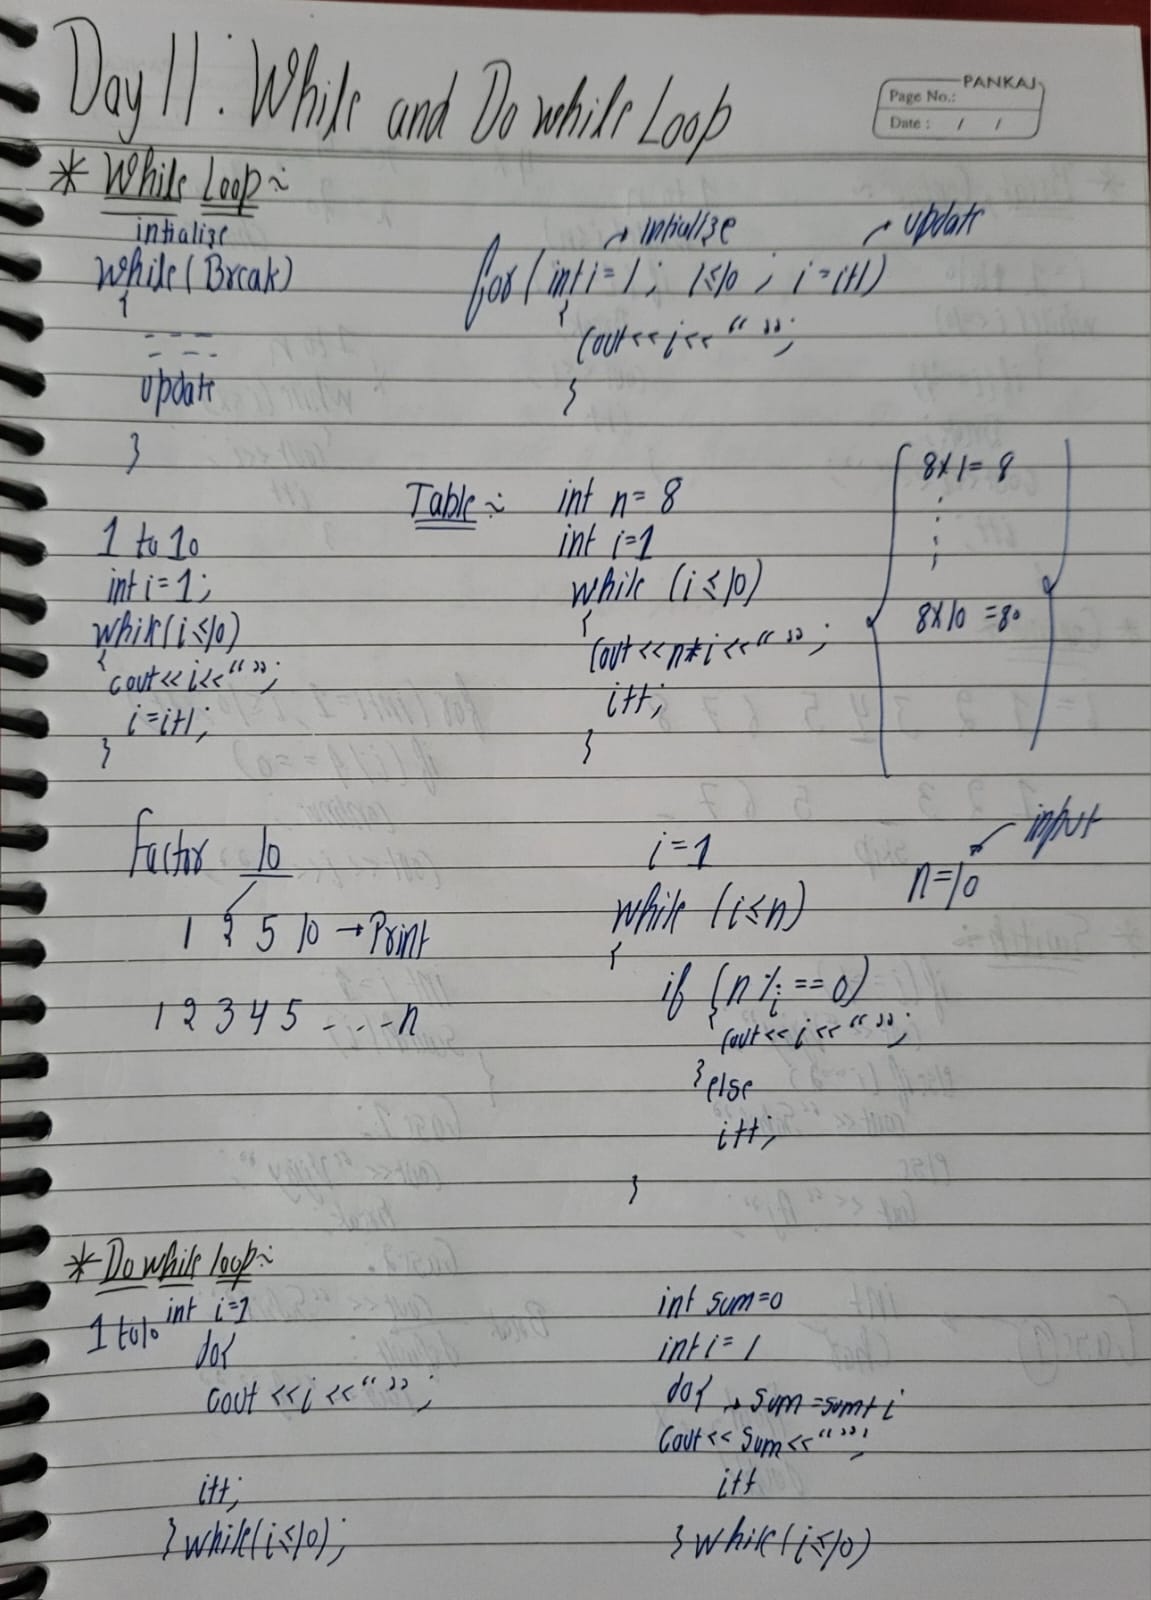 Day 11 : While and Do while Loop
PANKAJ
Page No.:
Date : / /
* While Loop :~
intialize
while ( Break )
{
- - - -
- - -
update
}
→ Intialize
→ update
for ( int i = 1 ; i ≤ 10 ; i = i+1 )
{
cout << i << " " ;
}
1 to 10
int i = 1 ;
while ( i ≤ 10 )
{
cout << i << " " ;
i = i+1 ;
}
Table :~
int n = 8
int i = 1
while ( i ≤ 10 )
{
cout << n * i << " " ;
i++ ;
}
8 x 1 = 8
8 x 10 = 80
Factor 10
1 2 5 10 → Print
1 2 3 4 5 - - - n
i = 1
input
n = 10
while ( i ≤ n )
{
if ( n % i == 0 )
{
cout << i << " " ;
} else
i++ ;
}
* Do while loop :~
1 to 10
int i = 1
do {
cout << i << " " ;
i++ ;
} while ( i ≤ 10 ) ;
int sum = 0
int i = 1
do { → sum = sum + i
cout << sum << " " ;
i++
} while ( i ≤ 10 )